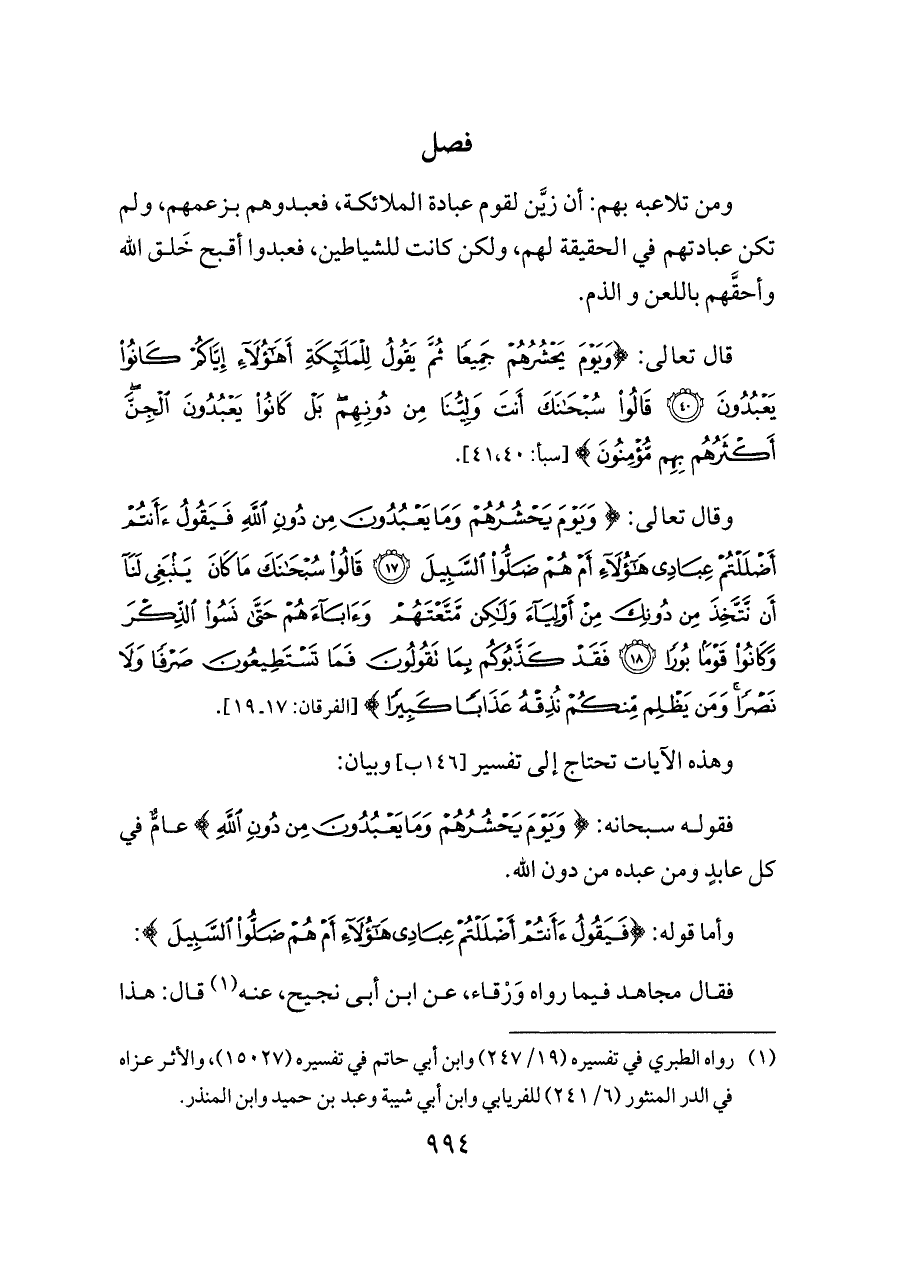 فصل
ومن تلاعبه بهم: أن زيَّن لقوم عبادة الملائكة، فعبدوهم بزعمهم، ولم
تكن عبادتهم في الحقيقة لهم، ولكن كانت للشياطين، فعبدوا أقبح خَلق الله
وأحقَّهم باللعن و الذم.
قال تعالى: ﴿وَيَوْمَ يَحْشُرُهُمْ جَمِيعًا ثُمَّ يَقُولُ لِلْمَلَٰٓئِكَةِ أَهَٰٓؤُلَآءِ إِيَّاكُمْ كَانُوا۟
يَعْبُدُونَ ۝٤٠ قَالُوا۟ سُبْحَٰنَكَ أَنتَ وَلِيُّنَا مِن دُونِهِم ۖ بَلْ كَانُوا۟ يَعْبُدُونَ ٱلْجِنَّ ۖ
أَكْثَرُهُم بِهِم مُّؤْمِنُونَ ﴾ [سبأ: ٤٠، ٤١].
وقال تعالى: ﴿ وَيَوْمَ يَحْشُرُهُمْ وَمَا يَعْبُدُونَ مِن دُونِ ٱللَّهِ فَيَقُولُ ءَأَنتُمْ
أَضْلَلْتُمْ عِبَادِى هَٰٓؤُلَآءِ أَمْ هُمْ ضَلُّوا۟ ٱلسَّبِيلَ ۝١٧ قَالُوا۟ سُبْحَٰنَكَ مَا كَانَ يَنۢبَغِى لَنَآ
أَن نَّتَّخِذَ مِن دُونِكَ مِنْ أَوْلِيَآءَ وَلَٰكِن مَّتَّعْتَهُمْ وَءَابَآءَهُمْ حَتَّىٰ نَسُوا۟ ٱلذِّكْرَ
وَكَانُوا۟ قَوْمًۢا بُورًا ۝١٨ فَقَدْ كَذَّبُوكُم بِمَا تَقُولُونَ فَمَا تَسْتَطِيعُونَ صَرْفًا وَلَا
نَصْرًا ۚ وَمَن يَظْلِم مِّنكُمْ نُذِقْهُ عَذَابًا كَبِيرًا ﴾ [الفرقان: ١٧ـ١٩].
وهذه الآيات تحتاج إلى تفسير [١٤٦ب] وبيان:
فقوله سبحانه: ﴿ وَيَوْمَ يَحْشُرُهُمْ وَمَا يَعْبُدُونَ مِن دُونِ ٱللَّهِ ﴾ عامٌّ في
كل عابدٍ ومن عبده من دون الله.
وأما قوله: ﴿فَيَقُولُ ءَأَنتُمْ أَضْلَلْتُمْ عِبَادِى هَٰٓؤُلَآءِ أَمْ هُمْ ضَلُّوا۟ ٱلسَّبِيلَ ﴾:
فقال مجاهد فيما رواه وَرْقاء، عن ابن أبى نجيح، عنه(١) قال: هذا
(١) رواه الطبري في تفسيره (١٩/ ٢٤٧) وابن أبي حاتم في تفسيره (١٥٠٢٧)، والأثر عزاه
في الدر المنثور (٦/ ٢٤١) للفريابي وابن أبي شيبة وعبد بن حميد وابن المنذر.
٩٩٤